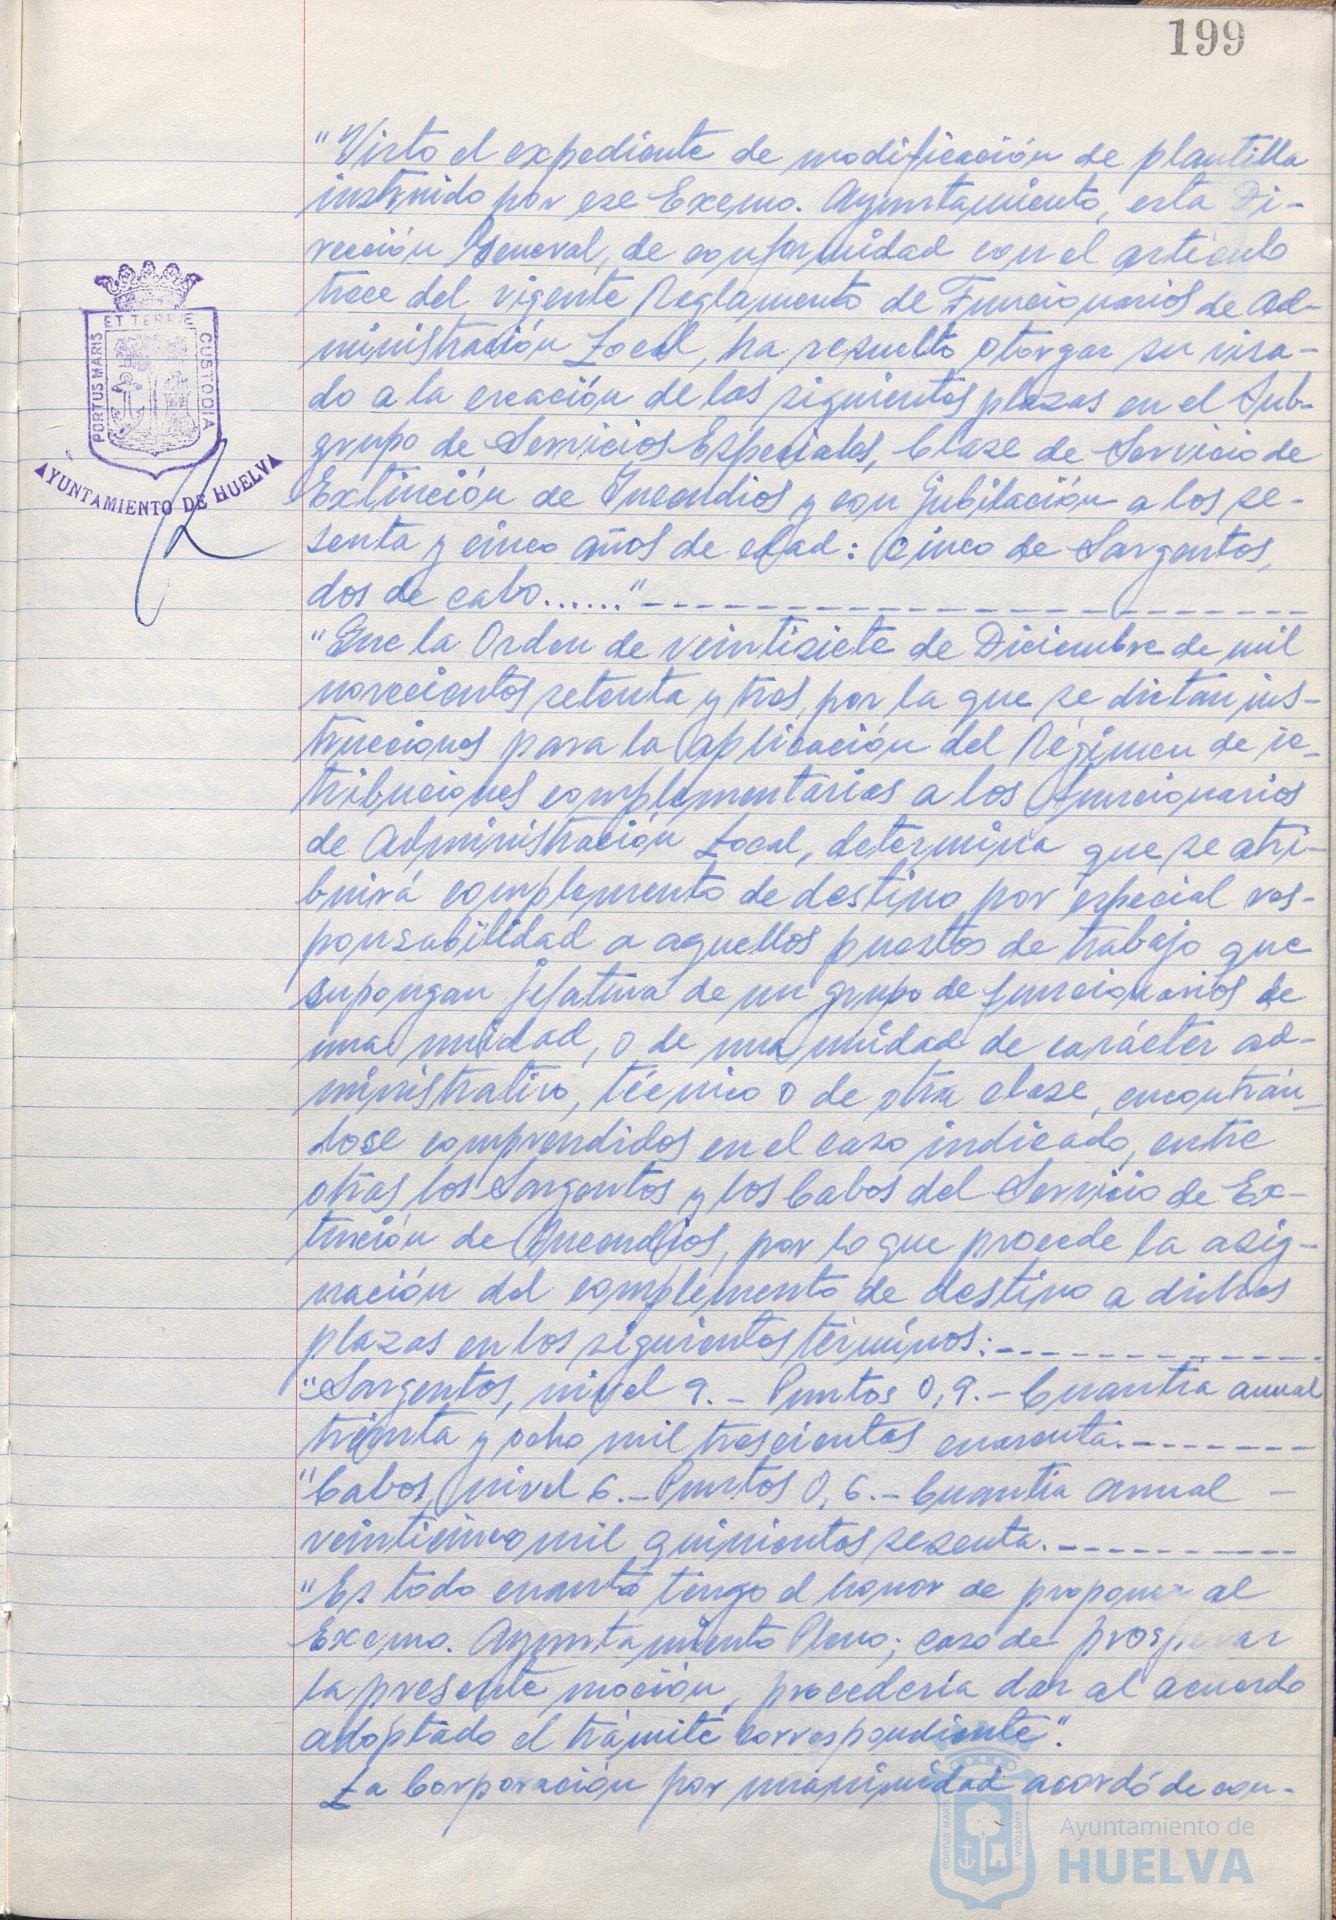 199
"Visto el expediente de modificación de plantilla
instruido por ese Excmo. Ayuntamiento, esta Di-
rección General, de conformidad con el artículo
trece del vigente Reglamento de Funcionarios de Ad-
ministración Local, ha resuelto otorgar su visa-
do a la creación de las siguientes plazas en el Sub-
grupo de Servicios Especiales, Clase de Servicio de
Extinción de Incendios y con jubilación a los se-
senta y cinco años de edad: Cinco de Sargentos,
dos de cabo......"
"Que la Orden de veintisiete de Diciembre de mil
novecientos setenta y tres, por la que se dictan ins-
trucciones para la aplicación del Régimen de re-
tribuciones complementarias a los funcionarios
de Administración Local, determina que se atri-
buirá complemento de destino por especial res-
ponsabilidad a aquellos puestos de trabajo que
supongan jefatura de un grupo de funcionarios de
una unidad, o de una unidad de carácter ad-
ministrativo, técnico o de otra clase, encontrán-
dose comprendidos en el caso indicado, entre
otras los Sargentos y los Cabos del Servicio de Ex-
tinción de Incendios, por lo que procede la asig-
nación del complemento de destino a dichas
plazas en los siguientes términos:
"Sargentos, nivel 9.- Puntos 0,9.- Cuantía anual
treinta y ocho mil trescientas cuarenta.
"Cabos, nivel 6.- Puntos 0,6.- Cuantía anual -
veinticinco mil quinientas sesenta.
"Es todo cuanto tengo el honor de proponer al
Excmo. Ayuntamiento Pleno; caso de prosperar
la presente moción, procedería dar al acuerdo
adoptado el trámite correspondiente".
La Corporación por unanimidad acordó de con-
PORTUS MARIS ET TERRÆ CUSTODIA
AYUNTAMIENTO DE HUELVA
PORTUS MARIS CUSTODIA
Ayuntamiento de
HUELVA